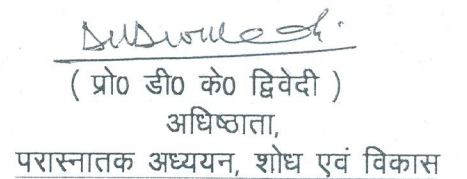 ( प्रो0 डी0 के0 द्विवेदी )
अधिष्ठाता,
परास्नातक अध्ययन, शोध एवं विकास